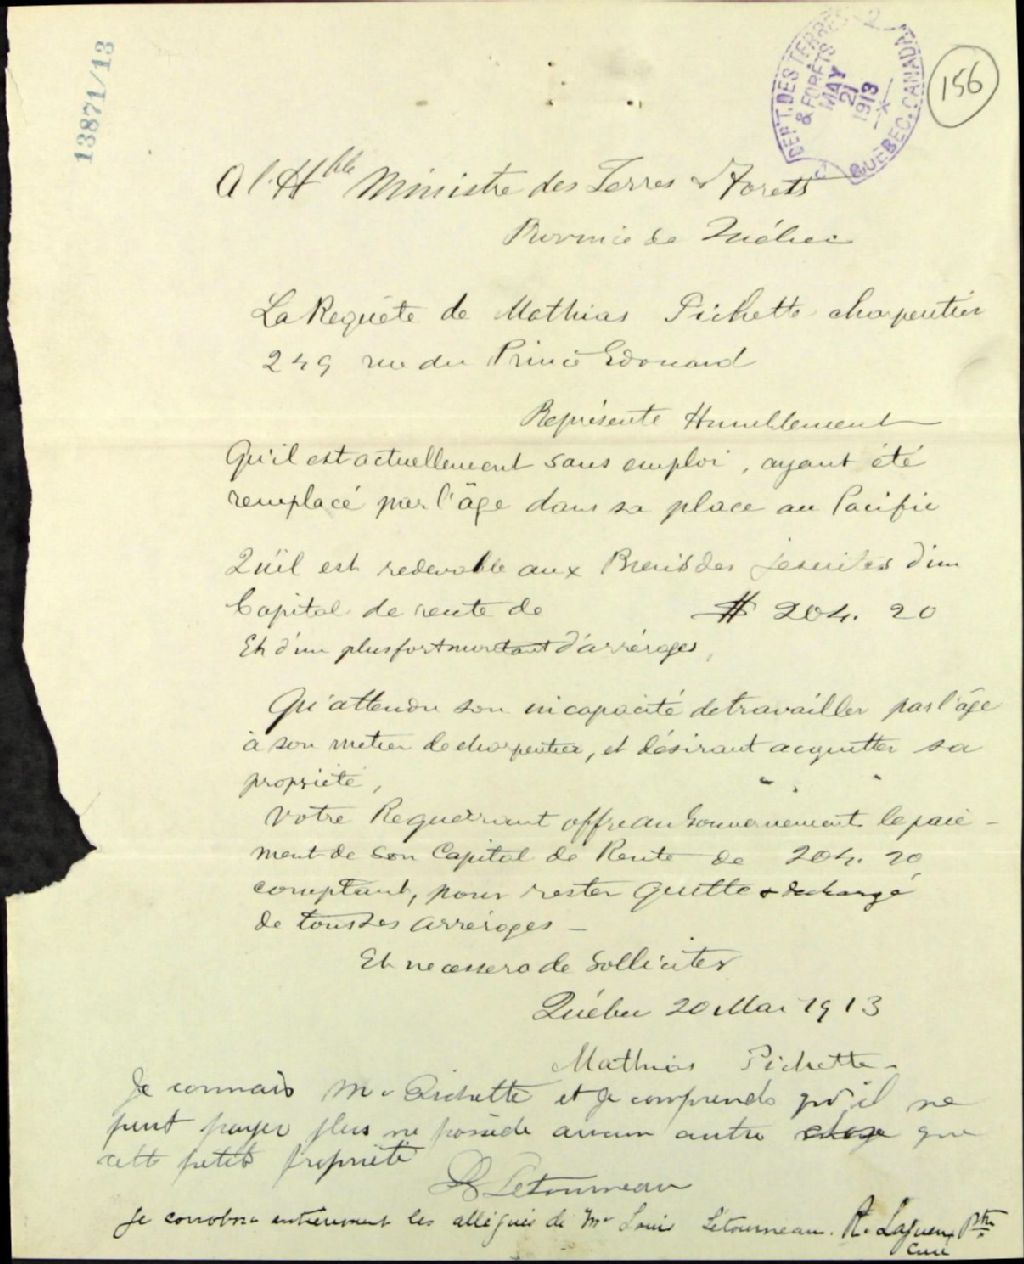 13871/13
DEP'T. DES TERRES
& FORÊTS
MAY
21
1913
QUEBEC, CANADA
156
A l'Hble Ministre des Terres & Forets
Province de Québec
La Requête de Mathias Pichette charpentier
249 rue du Prince Edouard
Représente Humblement
Qu'il est actuellement sans emploi, ayant été
remplacé par l'âge dans sa place au Pacific
Qu'il est redevable aux Biens des Jésuites d'un
Capital de rente de $ 204. 20
Et d'un plus fort montant d'arrérages,
Qu'attendu son incapacité de travailler par l'âge
à son métier de charpentier, et désirant acquitter sa
propriété,
Votre Requérant offre au Gouvernement le paie-
ment de son Capital de Rente de 204. 20
comptant, pour rester quitte & déchargé
de tous les arrérages -
Et ne cessera de Solliciter
Québec 20 Mai 1913
Mathias Pichette
Je connais Mr Pichette et je comprends qu'il ne
peut payer plus ne possède aucun autre chose que
cette petite propriété
Ls Letourneau
Je corrobore entièrement les allégués de Mr Louis Létourneau. Ptre
Curé